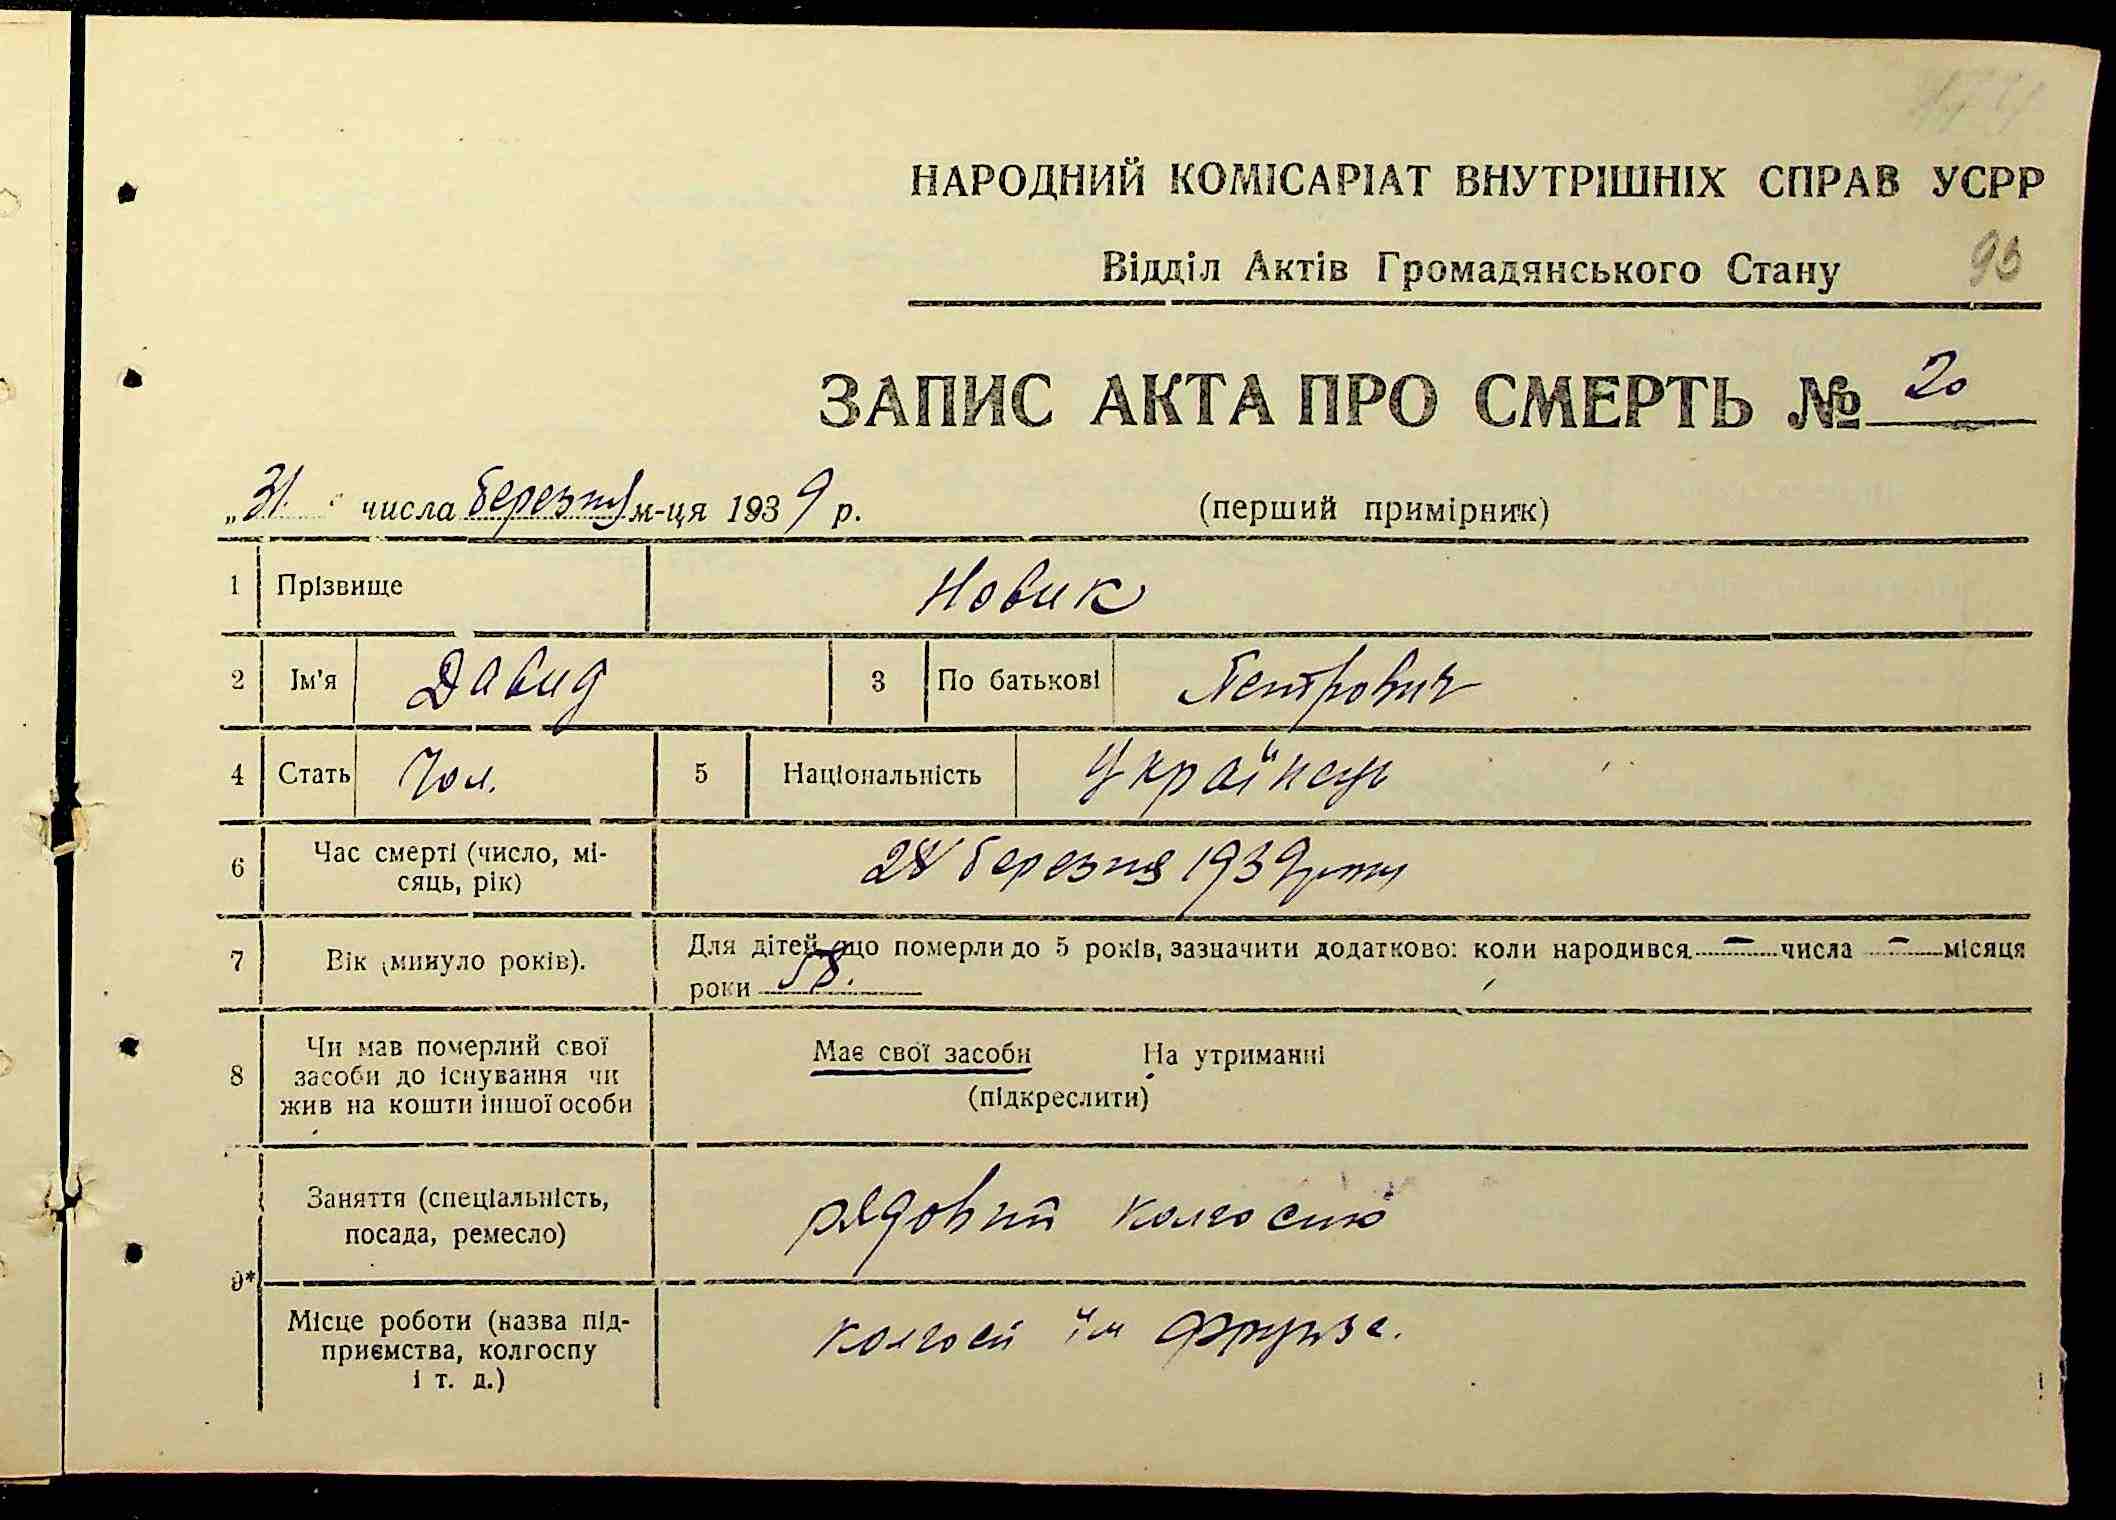 НАРОДНИЙ КОМІСАРІАТ ВНУТРІШНІХ СПРАВ УСРР
Відділ Актів Громадянського Стану
93
ЗАПИС АКТА ПРО СМЕРТЬ № 20
„31 числа березня м-ця 1939 р. (перший примірник)
1 Прізвище Новик
2 Ім'я Давид 3 По батькові Петрович
4 Стать Чол. 5 Національність Українець
6 Час смерті (число, мі-
сяць, рік) 28 березня 1939 року
7 Вік (минуло років). Для дітей що померли до 5 років, зазначити додатково: коли народився — числа — місяця
роки 58.
8 Чи мав померлий свої
засоби до існування чи
жив на кошти іншої особи
Має свої засоби На утриманні
(підкреслити)
9*
Заняття (спеціальність,
посада, ремесло) рядовий колгоспу
Місце роботи (назва під-
приємства, колгоспу
і т. д.) колгосп ім Фрунзе.